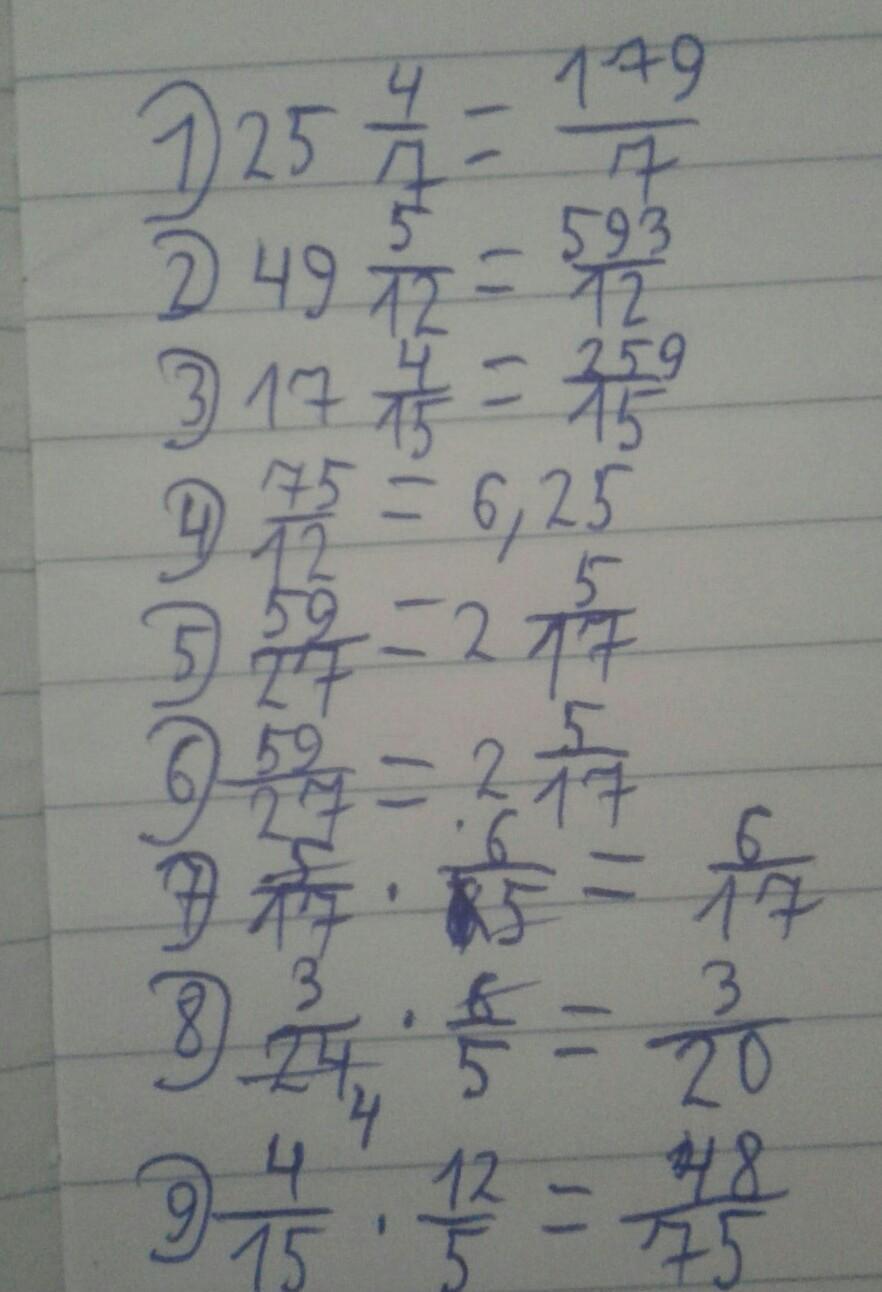 1) 25 4/7 = 179/7
2) 49 5/12 = 593/12
3) 17 4/15 = 259/15
4) 75/12 = 6,25
5) 59/27 = 2 5/17
6) 59/27 = 2 5/17
7) 5/17 · 6/5 = 6/17
8) 3/24 4 · 6/5 = 3/20
9) 4/15 · 12/5 = 48/75